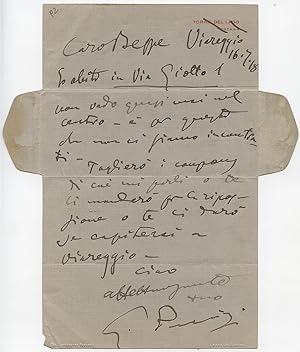 TORRE DEL LAGO
Caro Beppe Viareggio
16.7.18
Io abito in Via Giotto 1
non vado quasi mai nel
centro - è per questo
che non ci siamo incontra
ti - Taglierò i coupons
di cui mi parli e te
li manderò per
o te li darò
se capiterai a
Viareggio -
ciao
affettuosamente
tuo
G. Puccini